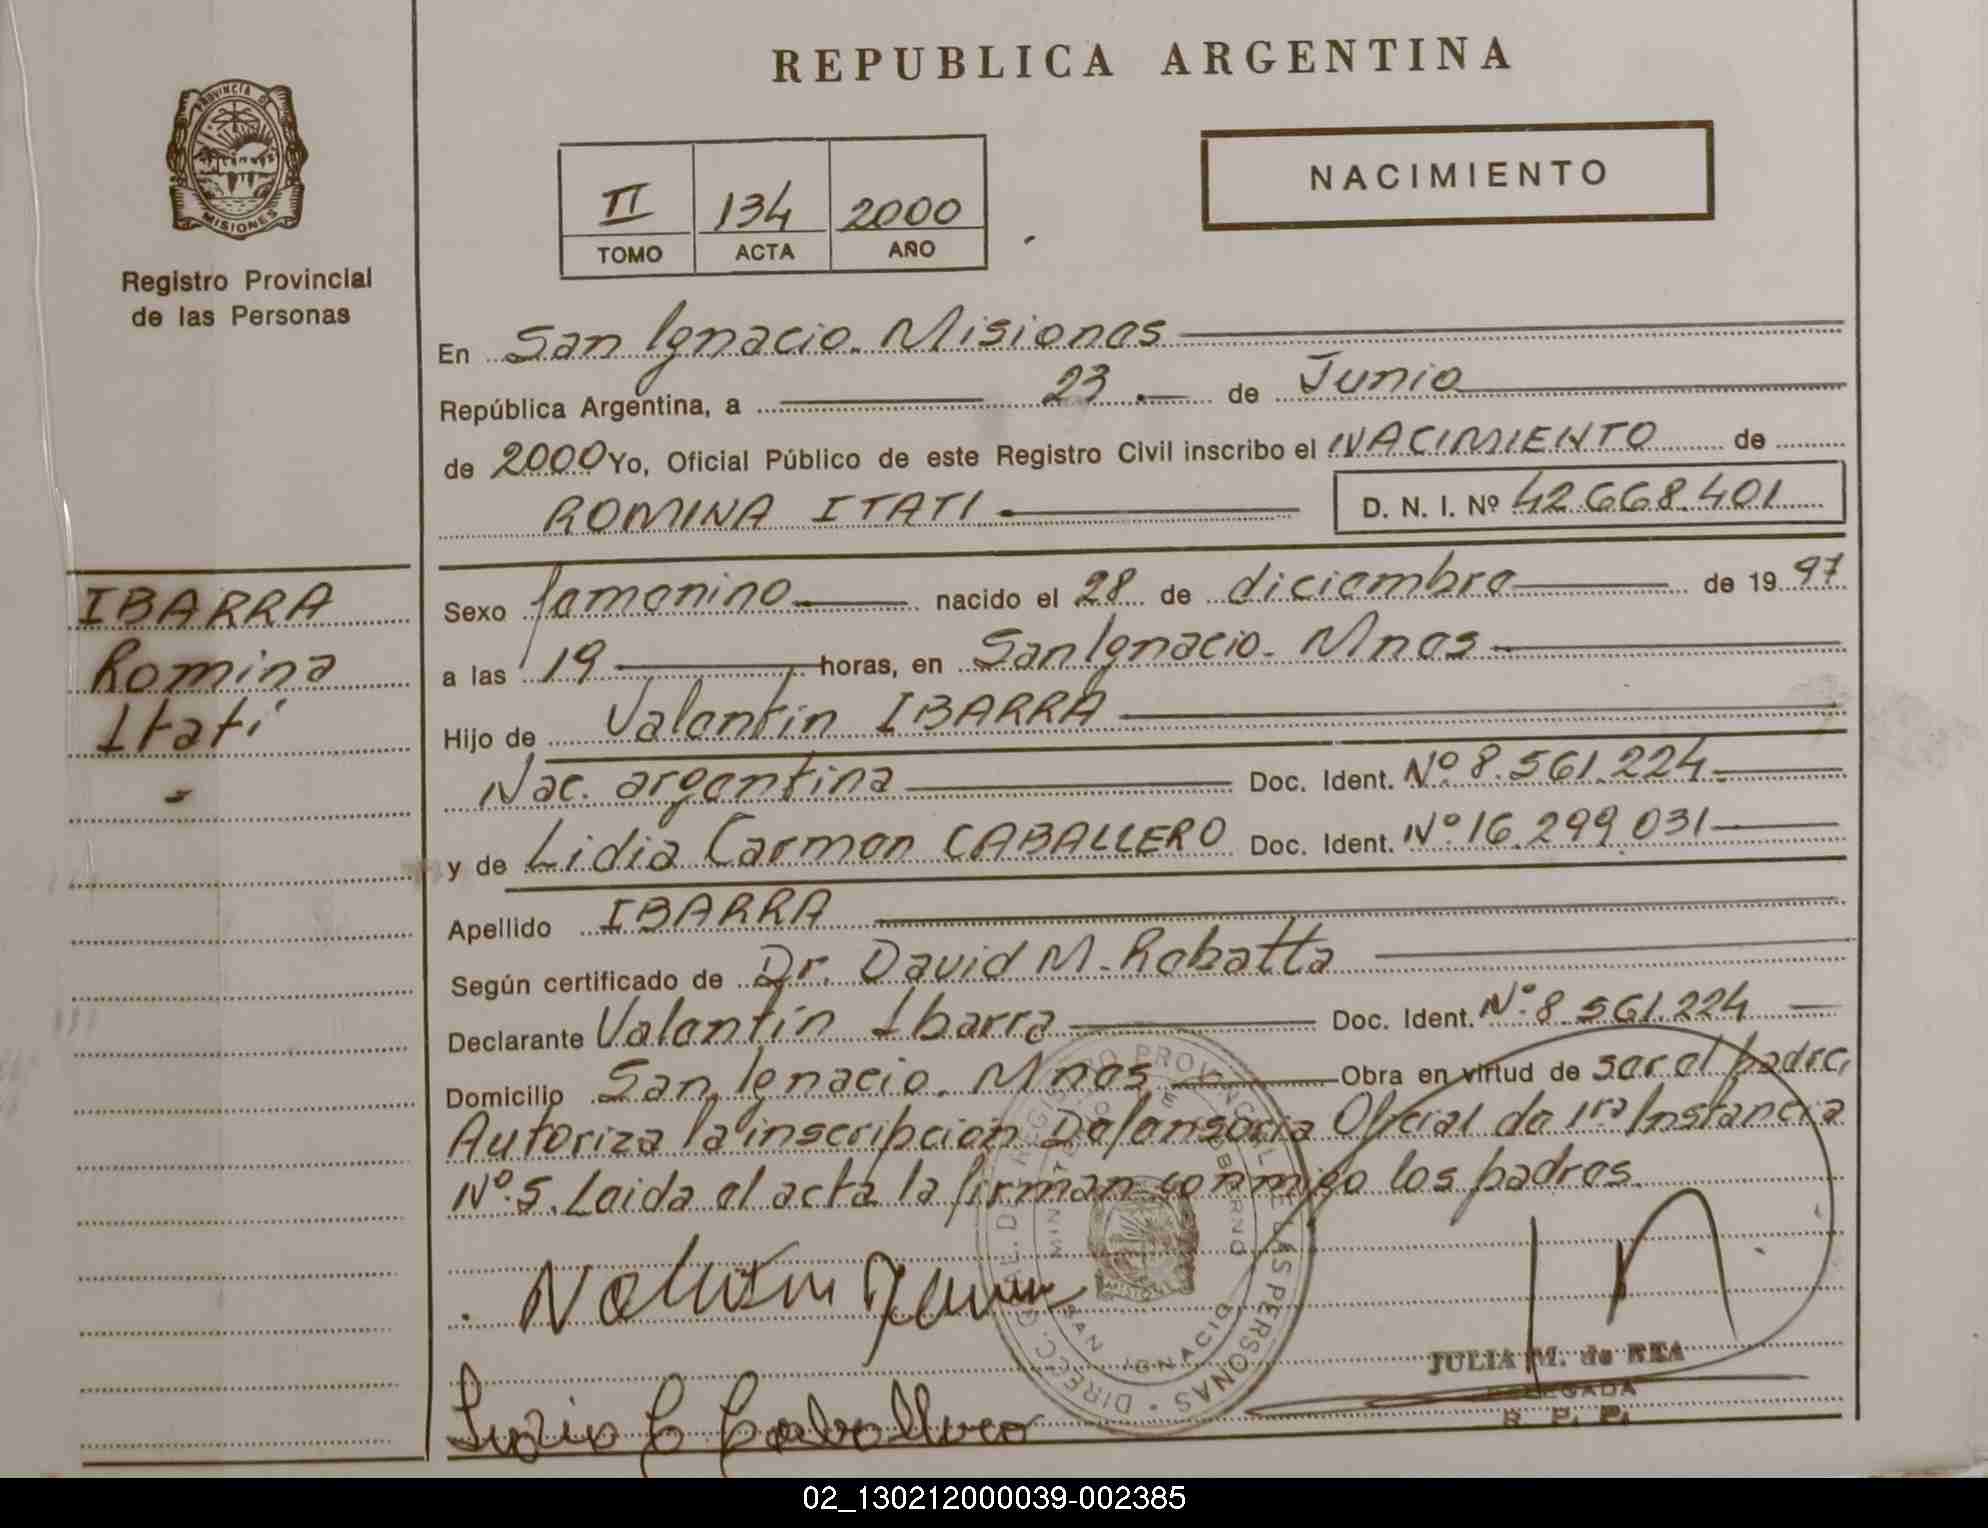 REPUBLICA ARGENTINA
PROVINCIA DE
MISIONES
Registro Provincial
de las Personas
NACIMIENTO
II 134 2000
TOMO ACTA AÑO
En San Ignacio. Misiones
República Argentina, a 23 de Junio
de 2000 Yo, Oficial Público de este Registro Civil inscribo el NACIMIENTO de
ROMINA ITATI D. N. I. Nº 42.668.401
IBARRA
Romina
Itatí
Sexo femenino nacido el 28 de diciembre de 19 97
a las 19 horas, en San Ignacio. Mnes
Hijo de Valentín IBARRA
Nac. argentina Doc. Ident. Nº 8.561.224
y de Lidia Carmen CABALLERO Doc. Ident. Nº 16.299.031
Apellido IBARRA
Según certificado de Dr. David M. Rebatta
Declarante Valentín Ibarra Doc. Ident. Nº 8.561.224
Domicilio San Ignacio. Mnes Obra en virtud de ser el padre,
Autoriza la inscripción Defensoría Oficial de 1ra Instancia
Nº 5. Leida el acta la firman conmigo los padres.
DIRECC. GRAL. DE REGISTRO PROVINCIAL DE LAS PERSONAS
MINISTERIO DE GOBIERNO
MISIONES
SAN IGNACIO
JULIA M. de REA
DELEGADA
R. P. P.
02_130212000039-002385